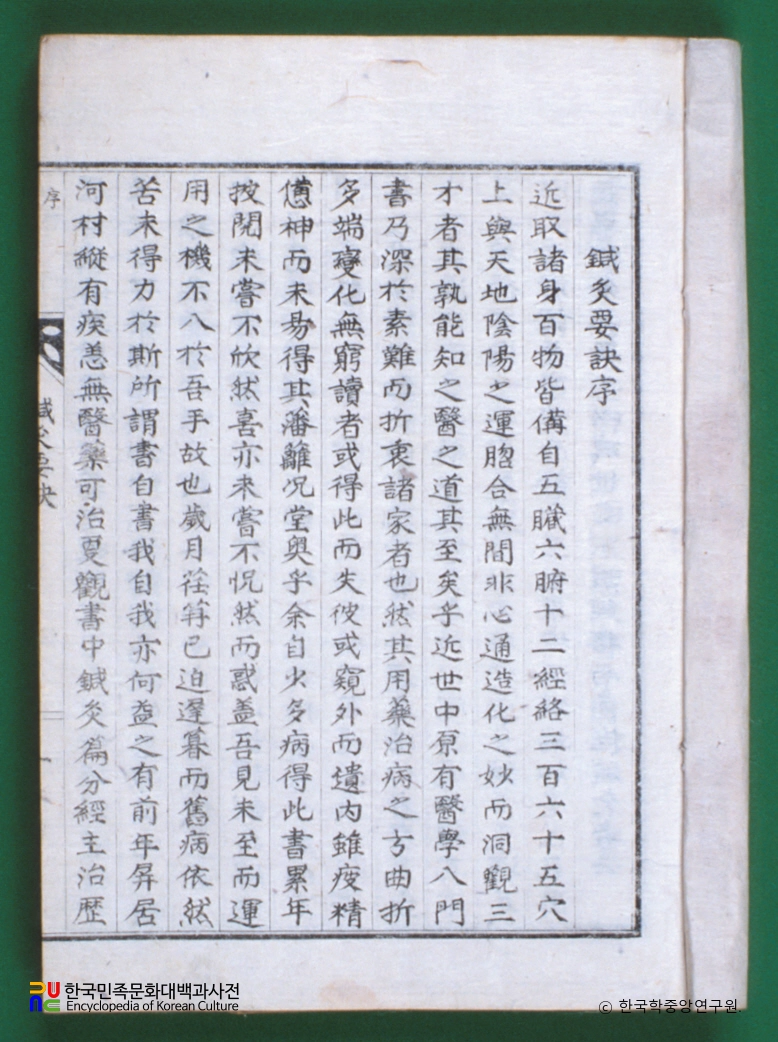 鍼灸要訣序
近取諸身百物皆備自五臟六腑十二經絡三百六十五穴
上與天地陰陽之運脗合無間非心通造化之妙而洞觀三
才者其孰能知之醫之道其至矣乎近世中原有醫學八門
書乃深於素難而折衷諸家者也然其用藥治病之方曲折
多端變化無窮讀者或得此而失彼或窺外而遺內雖疲精
憊神而未易得其藩籬况堂奧乎余自少多病得此書累年
按閱未嘗不欣然喜亦未嘗不怳然而惑盖吾見未至而運
用之機不入於吾手故也歲月荏苒已迫遲暮而舊病依然
苦未得力於斯所謂書自書我自我亦何益之有前年屏居
河村縱有疾恙無醫藥可治夏觀書中鍼灸篇分經主治歷
序
鍼灸要訣
一
한국민족문화대백과사전
Encyclopedia of Korean Culture
© 한국학중앙연구원